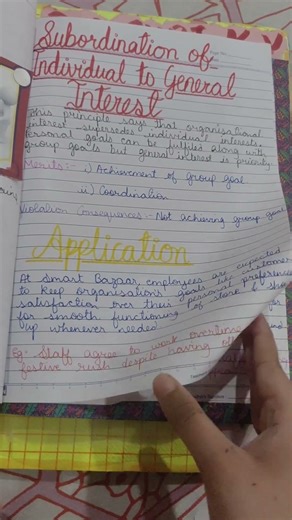 Subordination of
Individual to General
Interest
This principle says that organisational
interest supersedes individual interests.
Personal goals can be fulfilled along with
group goals but general interest is priority.
Merits:- i) Achievement of group goal
ii) Coordination
Violation Consequences:- Not achieving group goal
Application
At Smart Bazaar, employees are expected
to keep organisations' goals like customer
satisfaction over their personal preference
for smooth functioning of store &
up whenever needed
Eg:- Staff agree to work overtime
festive rush despite having